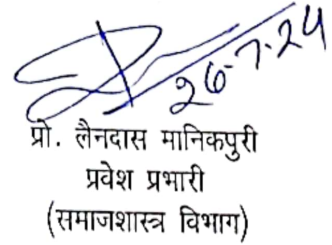 26-7-24
प्रो. लैनदास मानिकपुरी
प्रवेश प्रभारी
(समाजशास्त्र विभाग)